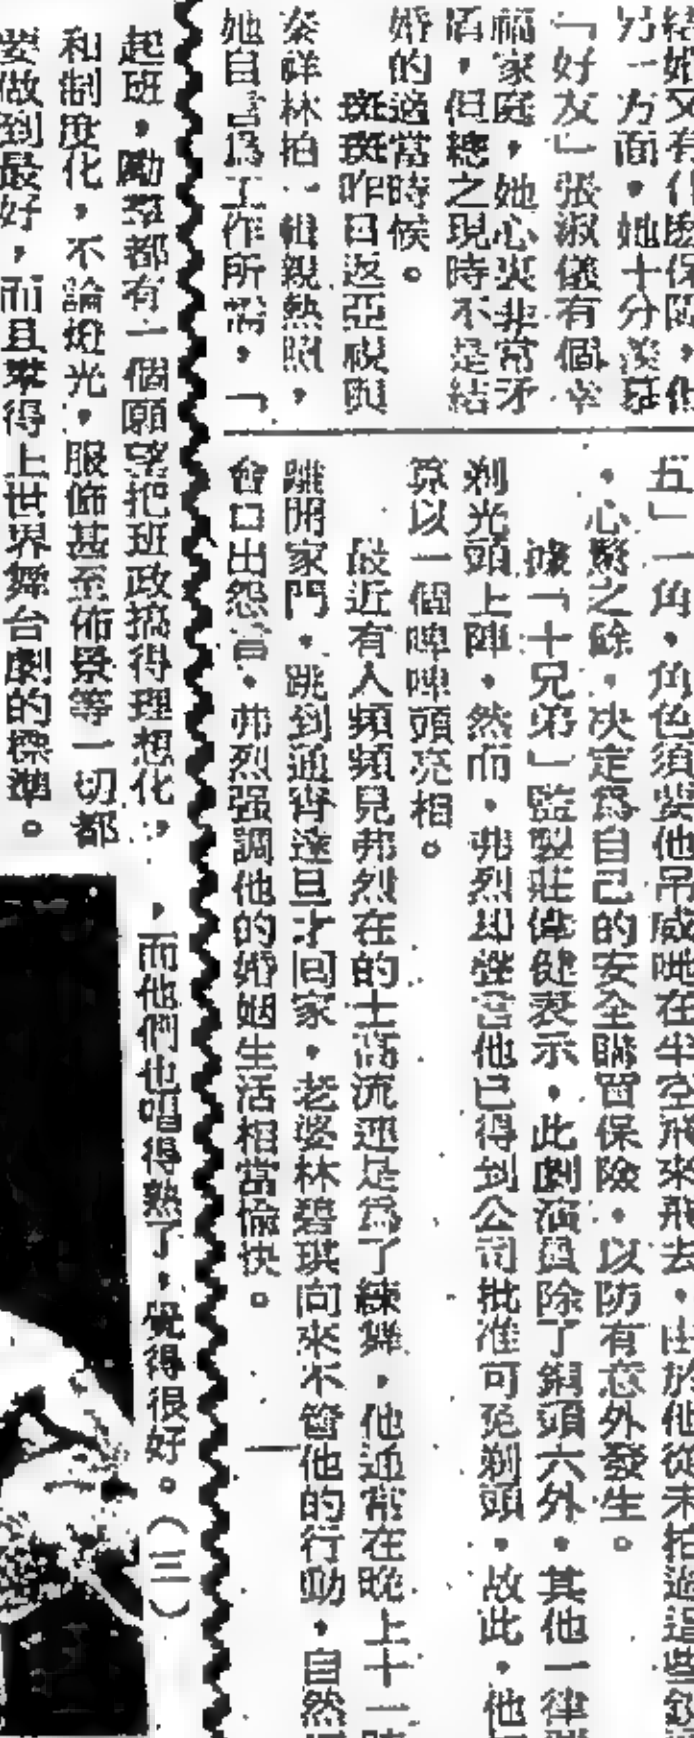 結婚又有什麼保障，但
另一方面，她十分羨慕
「好友」張淑儀有個幸
福家庭，她心裏非常矛
盾，但總之現時不是結
婚的適當時候。
斑斑昨日返亞視與
秦祥林拍一輯親熱照，
她自言為工作所需，「
五」一角，角色須要他吊威吔在半空飛來飛去，由於他從未拍過這些
，心驚之餘，决定為自己的安全購買保險，以防有意外發生。
據「十兄弟」監製莊偉健表示，此劇演員除了銅頭六外，其他一律
剃光頭上陣，然而，弗烈却聲言他已得到公司批准可免剃頭，故此，他
算以一個啤啤頭亮相。
最近有人頻頻見弗烈在的士高流連是為了練舞，他通常在晚上十一時
跳開家門，跳到通宵達旦才回家，老婆林碧琪向來不管他的行動，自然
會口出怨言，弗烈强調他的婚姻生活相當愉快。
起班，勵羣都有一個願望把班政搞得理想化，
和制度化，不論燈光，服飾甚至佈景等一切都
要做到最好，而且舉得上世界舞台劇的標準。
，而他們也唱得熟了，覺得很好。（三）